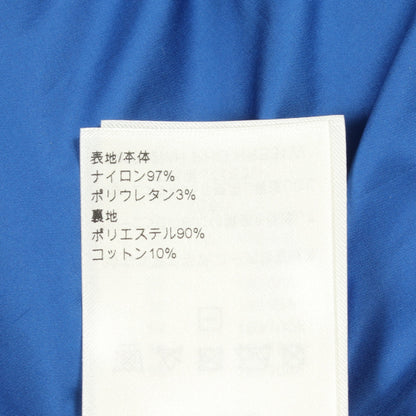 表地/本体
ナイロン97%
ポリウレタン3%
裏地
ポリエステル90%
コットン10%